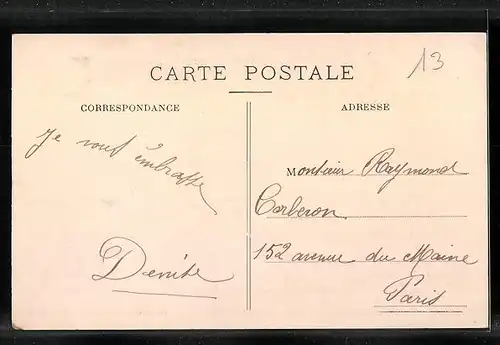 13
CARTE POSTALE
CORRESPONDANCE
Je vous embrasse
Denise
ADRESSE
Monsieur Raymond
Corberon
152 avenue du Maine
Paris